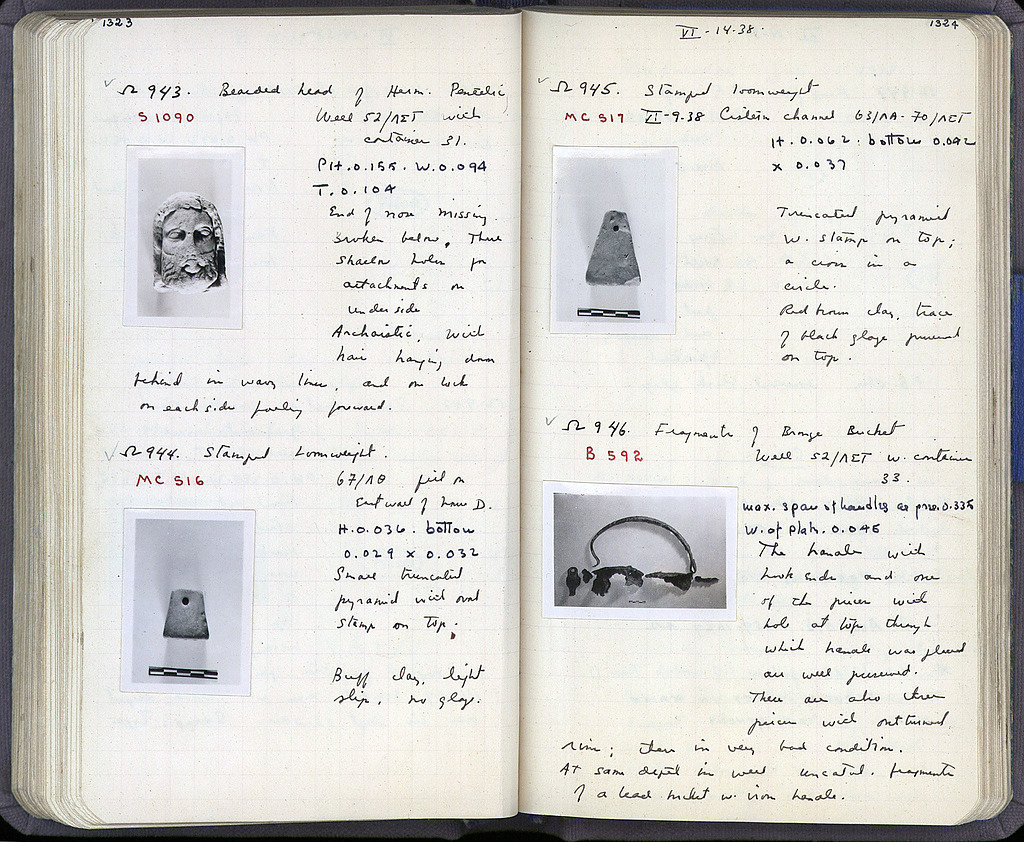 1323
Ω 943. Bearded head of Herm. Pentelic
S 1090
Well 52/ΛΕΤ with
container 31.
PH. 0.155. W. 0.094
T. 0.104
End of nose missing.
Broken below, Three
shallow holes for
attachments on
underside
Archaistic, with
hair hanging down
behind in wavy lines, and one lock
on each side falling forward.
Ω 944. Stamped Loomweight.
MC 516
67/ΛΘ fill on
East wall of house D.
H. 0.036. bottom
0.029 x 0.032
Small truncated
pyramid with oval
stamp on top.
Buff clay, light
slip, no glaze.
1324
VI - 14-38.
Ω 945. Stamped loomweight
MC 517 VI-9-38 Cistern channel 63/ΛΑ-70/ΛΕΤ
H. 0.062. bottom 0.042
x 0.037
Truncated pyramid
w. stamp on top;
a cross in a
circle.
Red brown clay, trace
of black glaze preserved
on top.
Ω 946. Fragments of Bronze Bucket
B 592
Well 52/ΛΕΤ w. container
33.
max. span of handles as pres. 0.335
W. of 0.045
The handle with
hook ends and one
of the pieces with
hole at top through
which handle was placed
are well preserved.
There are also three
pieces with outturned
rim; these in very bad condition.
At same depth in well uncatal. fragments
of a lead bucket w. iron handle.